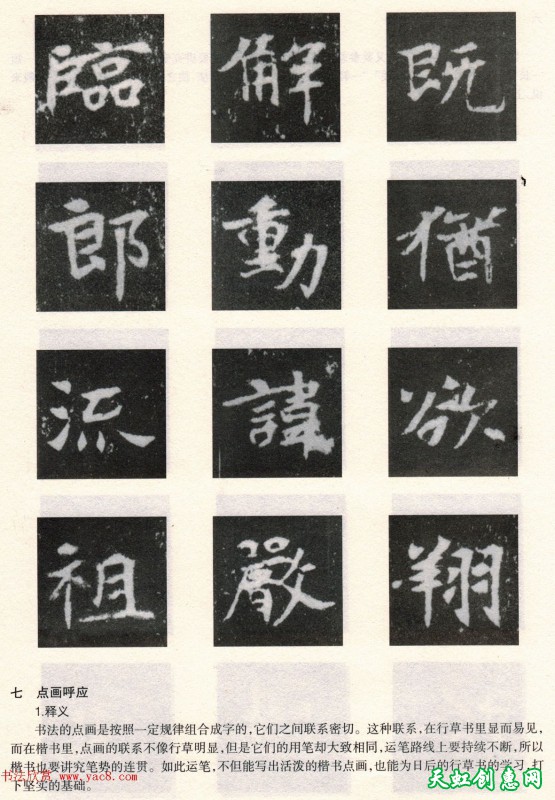 臨 解 既
郎 動 猶
流 諱 欲
祖 嚴 翔
七 点画呼应
1.释义
书法的点画是按照一定规律组合成字的,它们之间联系密切。这种联系,在行草书里显而易见,
而在楷书里,点画的联系不像行草明显,但是它们的用笔却大致相同,运笔路线上要持续不断,所以
楷书也要讲究笔势的连贯。如此运笔,不但能写出活泼的楷书点画,也能为日后的行草书的学习,打
下坚实的基础。
书法欣赏 www.yac8.com
天虹创意网